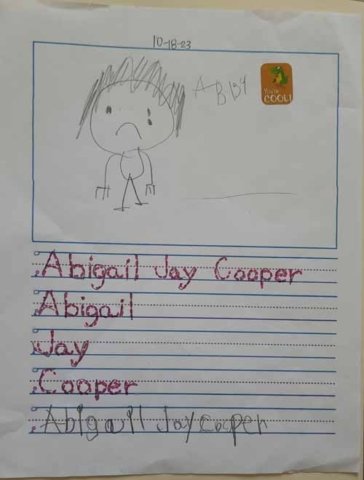 10-18-23
ABBY
You're
COOL!
Abigail Jay Cooper
Abigail
Jay
Cooper
Abigail Jay cooper